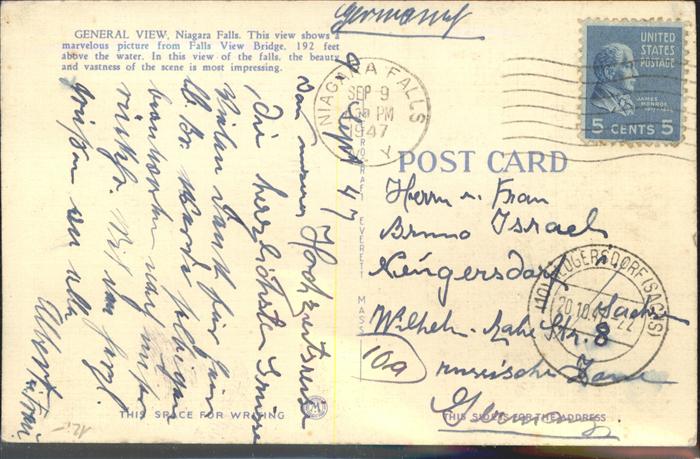 GENERAL VIEW, Niagara Falls. This view shows a
marvelous picture from Falls View Bridge. 192 feet
above the water. In this view of the falls, the beauty
and vastness of the scene is most impressing.
Germany
NIAGARA FALLS
SEP 9
PM
1947
N Y
UNITED
STATES
POSTAGE
JAMES
MONROE
5 CENTS 5
POST CARD
9 Sept 47
Von unserer Hochzeitsreise
die herzlichsten Grüsse
Vielen Dank für
Werde
beantworten
Mit
Grüßen an alle
Albert u. Frau
Herrn u. Frau
Bruno Israel
Neugersdorf i.
Sachs
Wilhelm- Str. 8
10a
russische Zone
Germany
(10) NEUGERSDORF (SACHS)
20.10.
EVERETT MASS
THIS SPACE FOR WRITING
THIS SIDE IS FOR THE ADDRESS
12.-